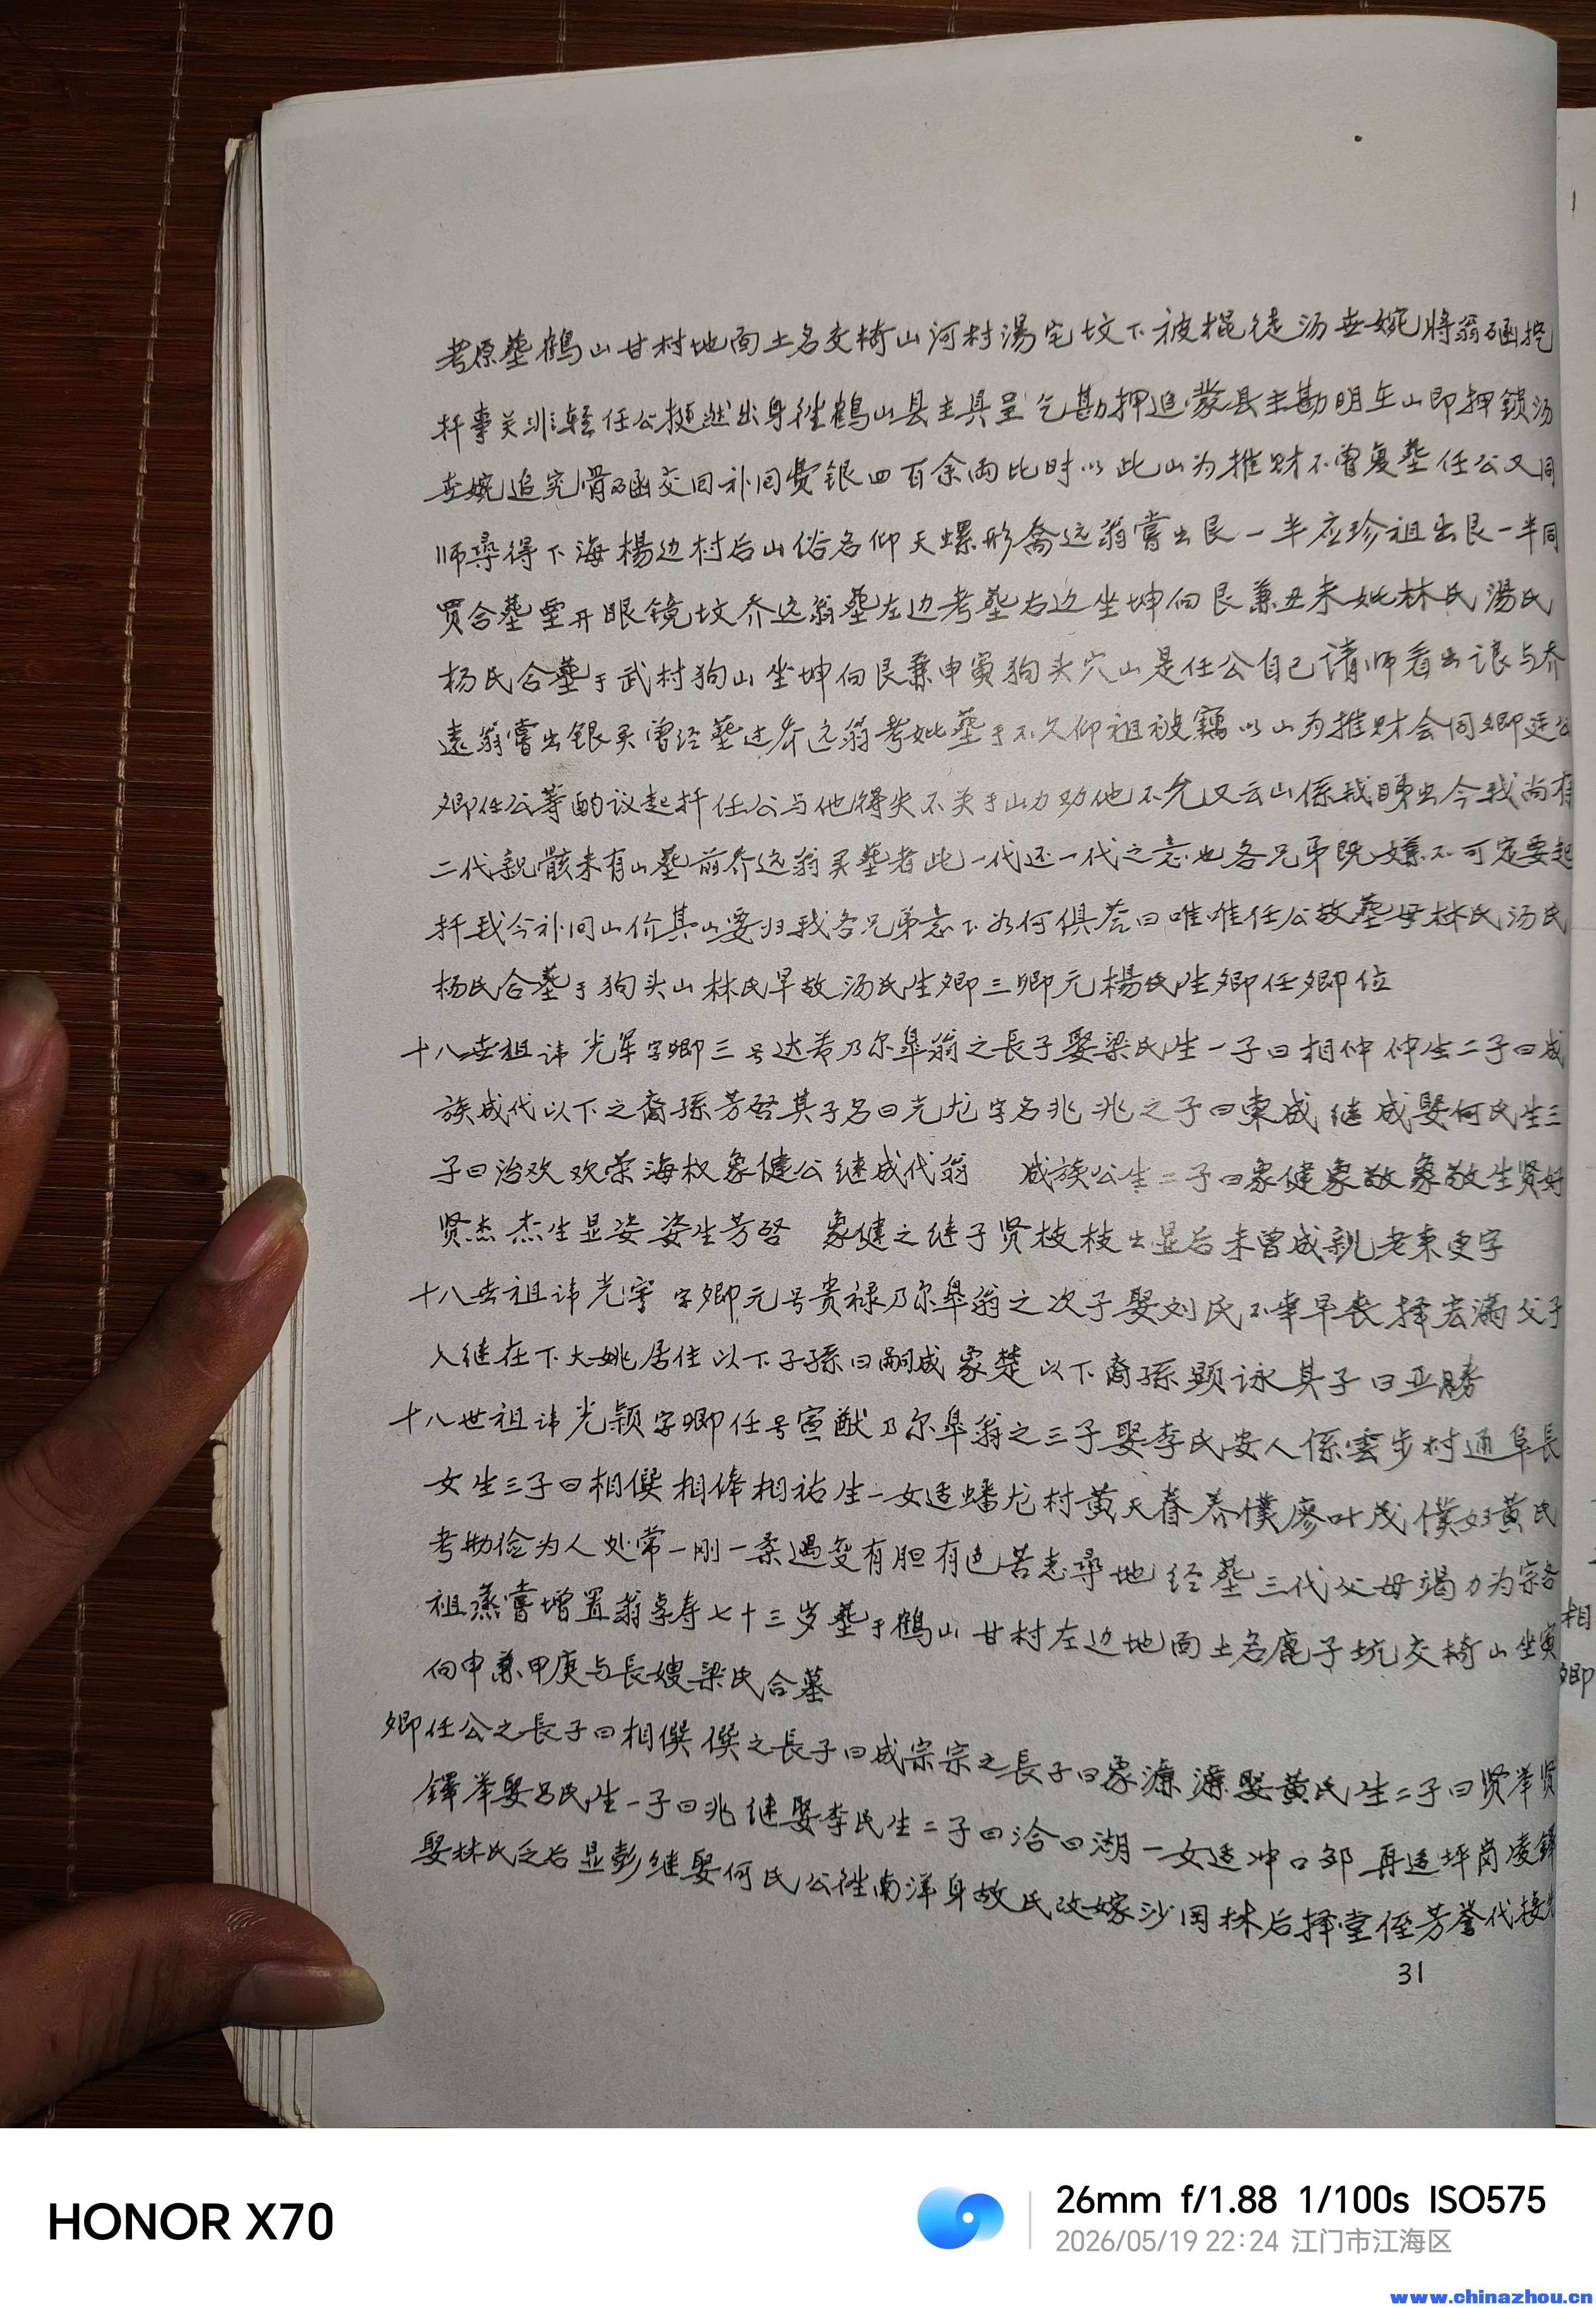 考原塟鶴山甘村地面土名交椅山河村湯宅坟下被棍徒汤世婉将翁函挖
扦事关非轻任公挺然出身往鶴山县主具呈乞勘押追蒙县主勘明在山即押锁汤
世婉追究骨函交回补回费银四百余両比时以此山为推财不曾复塟任公又同
师尋得下海楊边村后山俗名仰天螺形喬远翁嘗出艮一半应珍祖出艮一半同
買合塟里开眼镜坟乔远翁塟左边考塟右边坐坤向艮兼丑未妣林氏湯氏
杨氏合塟于武村狗山坐坤向艮兼申寅狗头穴山是任公自己请师看出让与乔
遠翁嘗出银买曾经塟过乔远翁考妣塟于不久仰祖被竊以山为推财会同卿廷公
卿任公等酌议起扦任公与他得失不关于山力劝他不允又云山係我睇出今我尚有
二代親骸未有山塟前乔远翁买塟者此一代还一代之意也各兄弟既嫌不可定要起
扦我今补回山价其山要归我各兄弟意下如何俱答曰唯唯任公故塟母林氏汤氏
杨氏合塟于狗头山林氏早故汤氏生卿三卿元楊氏生卿任卿位
十八世祖讳光军字卿三号达若乃尔皐翁之長子娶梁氏生一子曰相仲仲生二子曰成
族成代以下之裔孫芳啓其子名曰光龙字名兆兆之子曰東成继成娶何氏生三
子曰治欢欢荣海权象健公继成代翁 成族公生二子曰象健象敬象敬生贤好
贤杰杰生显姿姿生芳啓 象健之继子贤枝枝出显后未曾成親老来更字
十八世祖讳光宇字卿元号贵禄乃尔皐翁之次子娶刘氏不幸早丧择宏满父子
入继在下大姚居住以下子孫曰嗣成象楚以下裔孫顕详其子曰亚勝
十八世祖讳光颖字卿任号宣猷乃尔皐翁之三子娶李氏安人係雲步村通阜長
女生三子曰相僎相俸相祐生一女适蟠龙村黄天春养僕廖叶茂僕妇黄氏
考勤俭为人处常一刚一柔遇变有胆有色苦志尋地经塟三代父母竭力为宗各
祖蒸嘗增置翁享寿七十三岁塟于鶴山甘村左边地面土名鹿子坑交椅山坐寅
向申兼甲庚与長嫂梁氏合墓
卿任公之長子曰相僎僎之長子曰成宗宗之長子曰象濂濂娶黄氏生二子曰贤举贤
鐸举娶吕氏生一子曰兆继娶李氏生二子曰洽曰湖一女适冲口邹再适坪岗凌鐸
娶林氏乏后显彭继娶何氏公往南洋身故氏改嫁沙冈林后择堂侄芳誉代接
31
相
卿
HONOR X70
26mm f/1.88 1/100s ISO575
2026/05/19 22:24 江门市江海区
www.chinazhou.cn